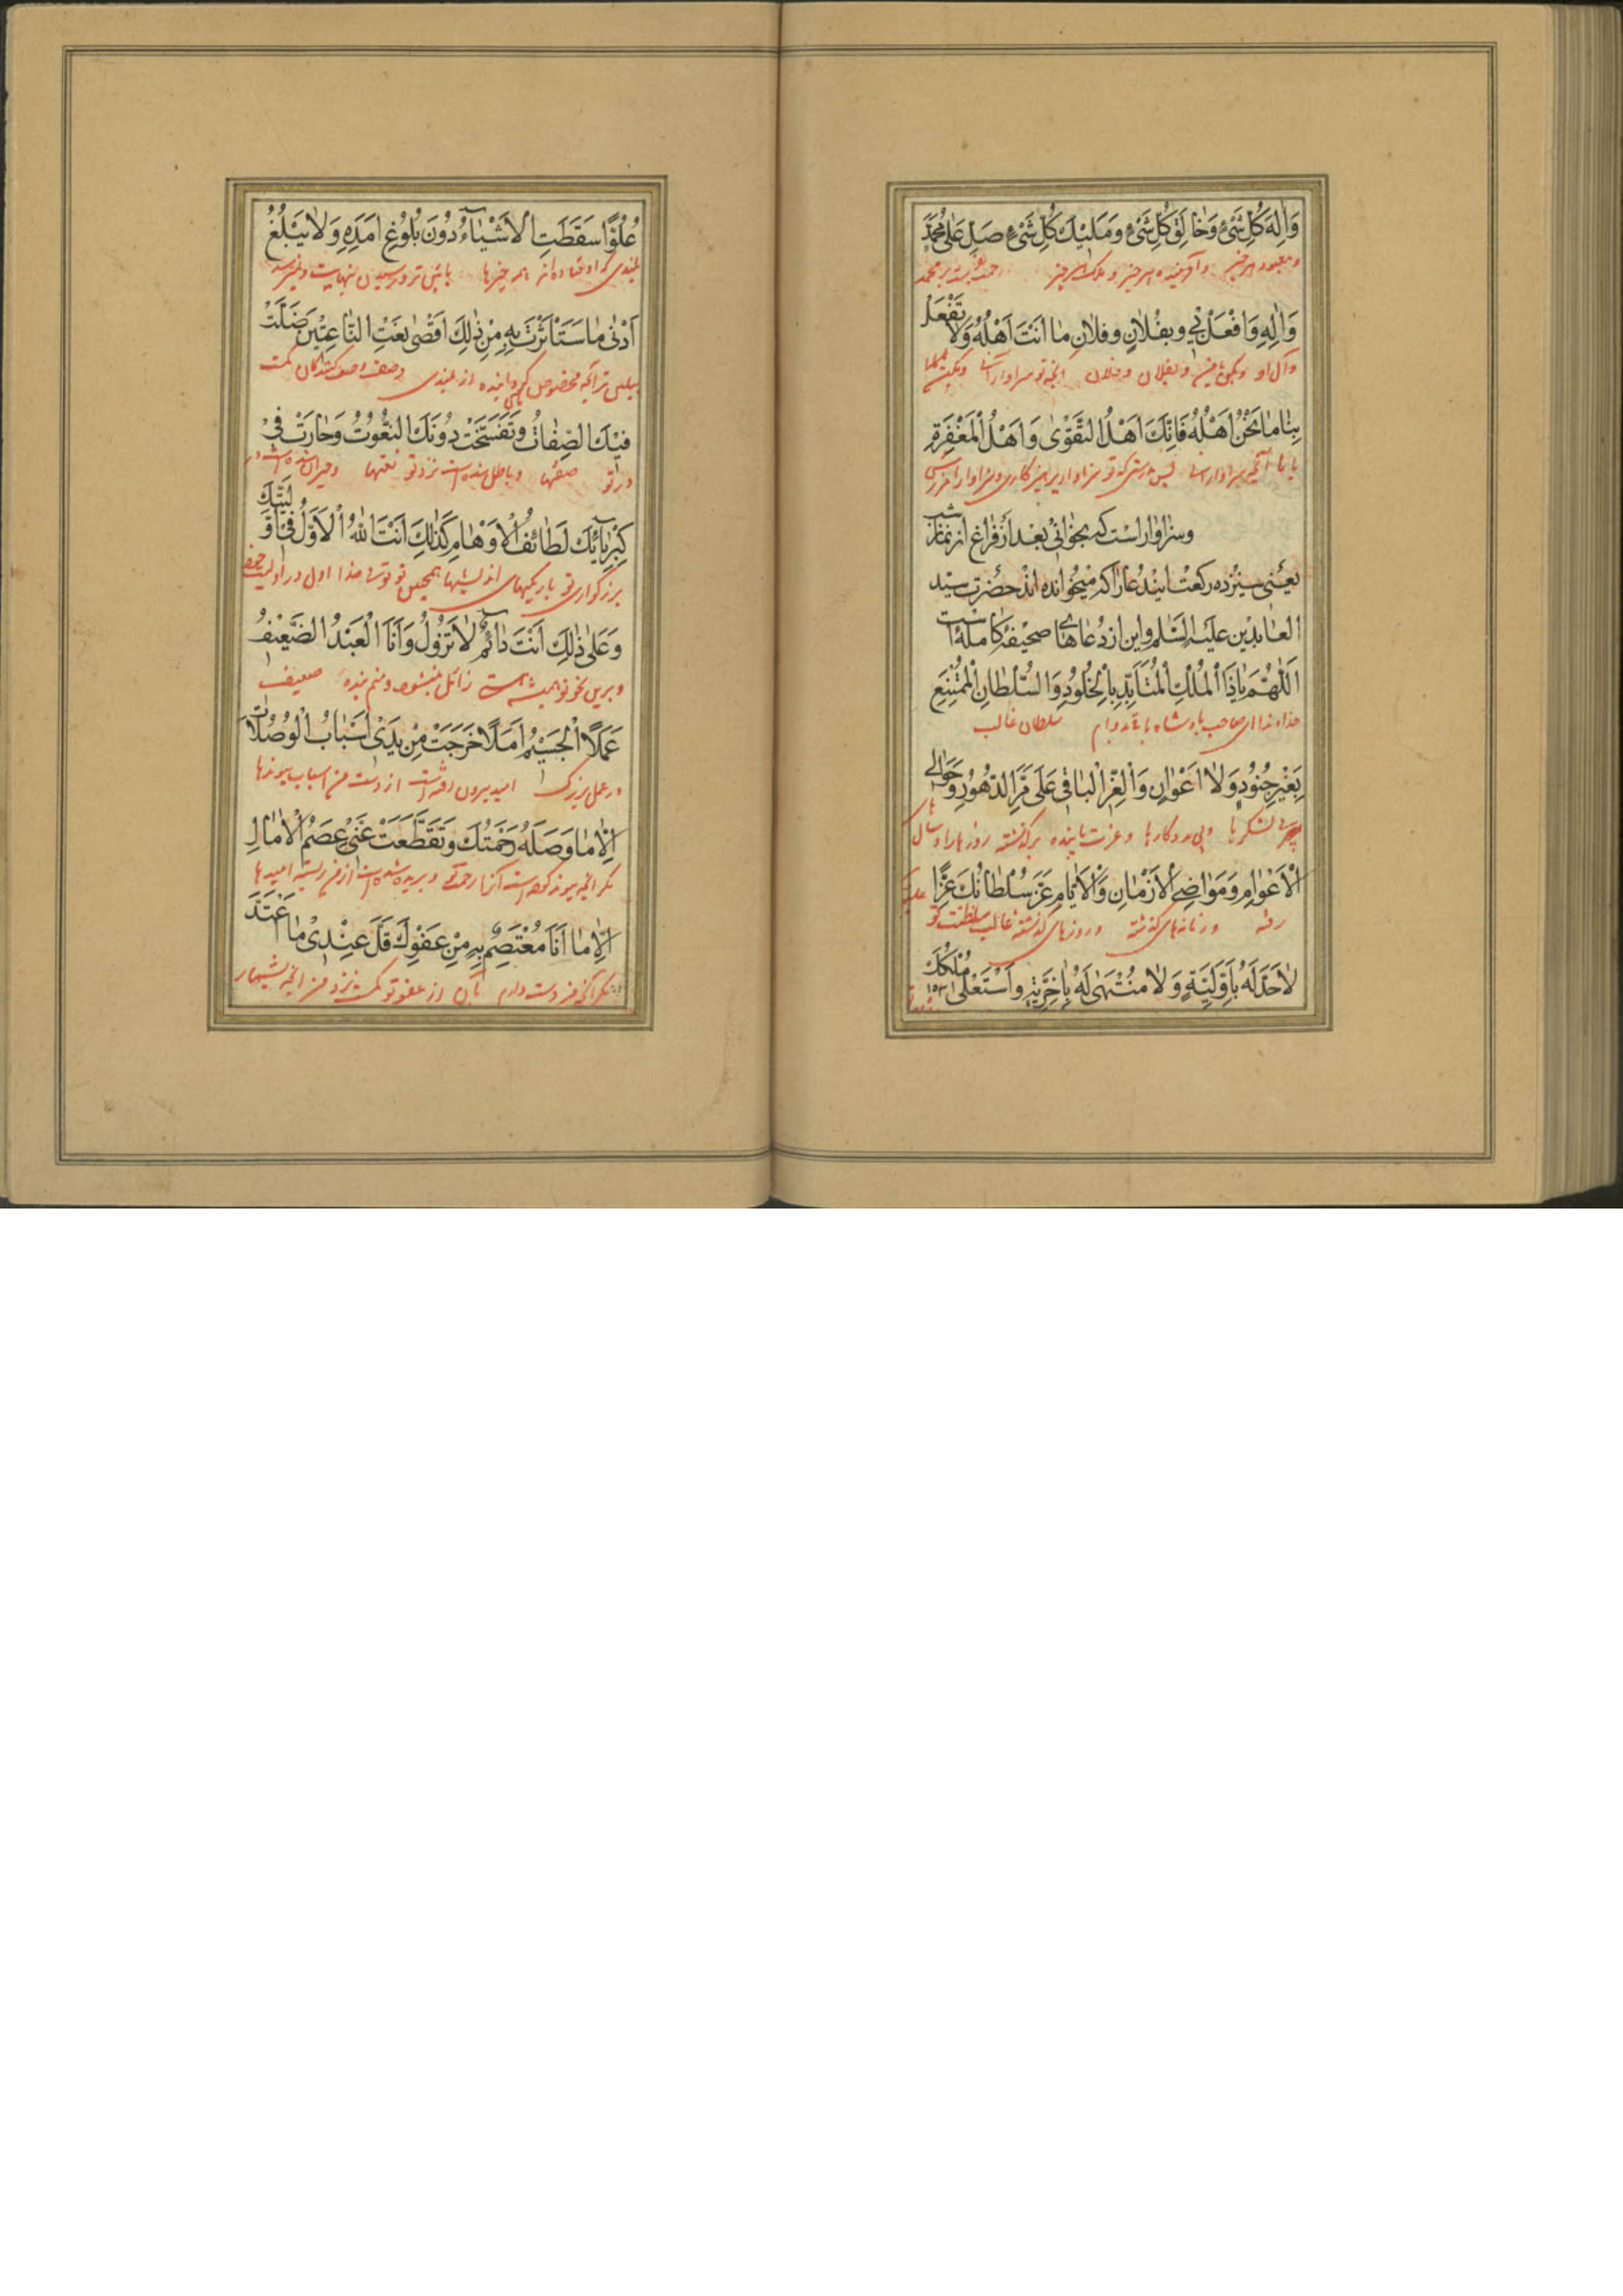 وَاِلٰهَ كُلِّ شَیْءٍ وَخٰالِقَ كُلِّ شَیْءٍ وَمَلِیْكَ كُلِّ شَیْءٍ صَلِّ عَلٰی مُحَمَّدٍ
و معبود هر چیز و آفریننده هر چیز و ملک هر چیز رحمت بفرست بر محمد
وَاٰلِهِ وَافْعَلْ بِیْ وبِفُلاٰنٍ وفلانٍ مٰا اَنْتَ اَهْلُهُ وَلاٰ تَفْعَلْ
وآل او وبکن بمن و بفلان و فلان آنچه تو سزاوار آنی و مکن
بِنٰا مٰا نَحْنُ اَهْلُهُ فَاِنَّكَ اَهْلُ التَّقْوٰی وَاَهْلُ الْمَغْفِرَةِ
با ما آنچه سزاوار آنیم پس بدرستی که تو سزاوار پرهیزکاری و سزاوار آمرزشی
وسزاوار است که بخوانی بعد از فراغ از نماز شب
یعنی سیزده رکعت ایندعا را که میخوانده اند حضرت سید
العابدین علیه السّلم واین از دعاهای صحیفه کامله است
اَللّٰهُمَّ یٰاذَا الْمُلْكِ الْمُتَاَبِّدِ بِالْخُلُودِ وَالسُّلْطٰانِ الْمُمْتَنِعِ
خداوندا ای صاحب پادشاه سلطان غالب
بِغَیْرِ جُنُوْدٍ وَلاٰ اَعْوٰانٍ وَالْعِزِّ الْبٰاقِی عَلٰی مَرِّ الدُّهُوْرِ وَخَوٰالِی
بی لشکرها و بی مددکارها و عزت پاینده بر گذشته روزها و سال های
الْاَعْوٰامِ وَمَوٰاضِی الْاَزْمٰانِ وَالْاَیّٰامِ عَزَّ سُلْطٰانُكَ عِزًّا
رفته و زمانهای گذشته و روزهای گذشته غالب سلطنت تو
لاٰحَدَّ لَهُ بِاَوَّلِیَّةٍ وَلاٰ مُنْتَهٰی لَهُ بِاٰخِرِیَّةٍ واَسْتَعْلٰی مُلْكُكَ
۱۵۳
عُلُوًّا سَقَطَتِ الْاَشْیٰآءُ دُوْنَ بُلُوْغِ اَمَدِهِ وَلاٰ یَبْلُغُ
بلندی که افتاده اند همه چیزها پائین تر از رسیدن بنهایت و نمیرسد
اَدْنٰی مٰا سْتَاْثَرْتَ بِهِ مِنْ ذٰلِكَ اَقْصٰی نَعْتِ النّٰاعِتِیْنَ ضَلَّتْ
آنچه مخصوص از بلندی وصف وصف کنندگان
فِیْكَ الصِّفٰاتُ وتَفَسَّخَتْ دُوْنَكَ النُّعُوْتُ وَحٰارَتْ فِیْ
در تو صفتها و باطل شده است نزد تو نعتها و حیران شده است در
كِبْرِیٰآئِكَ لَطٰائِفُ الْاَوْهٰامِ كَذٰلِكَ اَنْتَ اللّٰهُ الْاَوَّلُ فِیْ اَوَّلِیَّتِكَ
بزرگواری تو باریکیهای اندیشها همچنین تو توئی خدا اول در اولیت خود
وَعَلٰی ذٰلِكَ اَنْتَ دٰآئِمٌ لاٰ تَزُوْلُ وَاَنَا الْعَبْدُ الضَّعِیْفُ
و برین نحو تو همیشه زائل نمیشوی و منم بنده ضعیف
عَمَلًا الْجَسِیْمُ اَمَلًا خَرَجَتْ مِنْ یَدِیْ اَسْبٰابُ الْوُصُلاٰتِ
در عمل بزرگ امید بیرون رفته است از دست من اسباب پیوندها
اِلاّٰ مٰا وَصَلَهُ رَحْمَتُكَ وَتَقَطَّعَتْ عَنِّیْ عِصَمُ الْاٰمٰالِ
مگر آنچه پیوند کرده است آنرا رحمت تو و بریده شده است از من امیدها
اِلاّٰ مٰا اَنَا مُعْتَصِمٌ بِهِ مِنْ عَفْوِكَ قَلَّ عِنْدِیْ مٰا اَعْتَدُّ
مگر آنچه من دست دارم بآن از عفو تو کمست نزد من آنچه بشمار